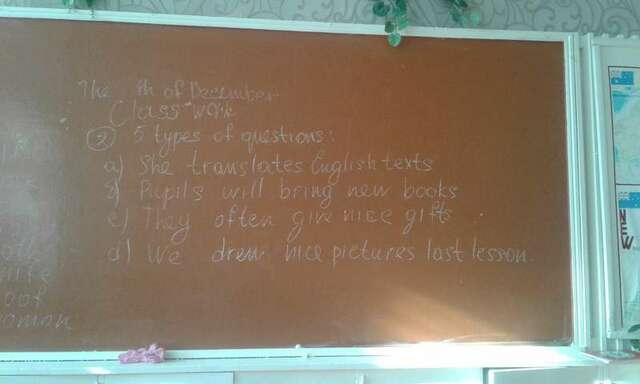 The th of December
Class work
2 5 types of questions:
a) She translates English texts
b) Pupils will bring new books
c) They often give nice gifts
d) We drew nice pictures last lesson.
oof
woman
NEW